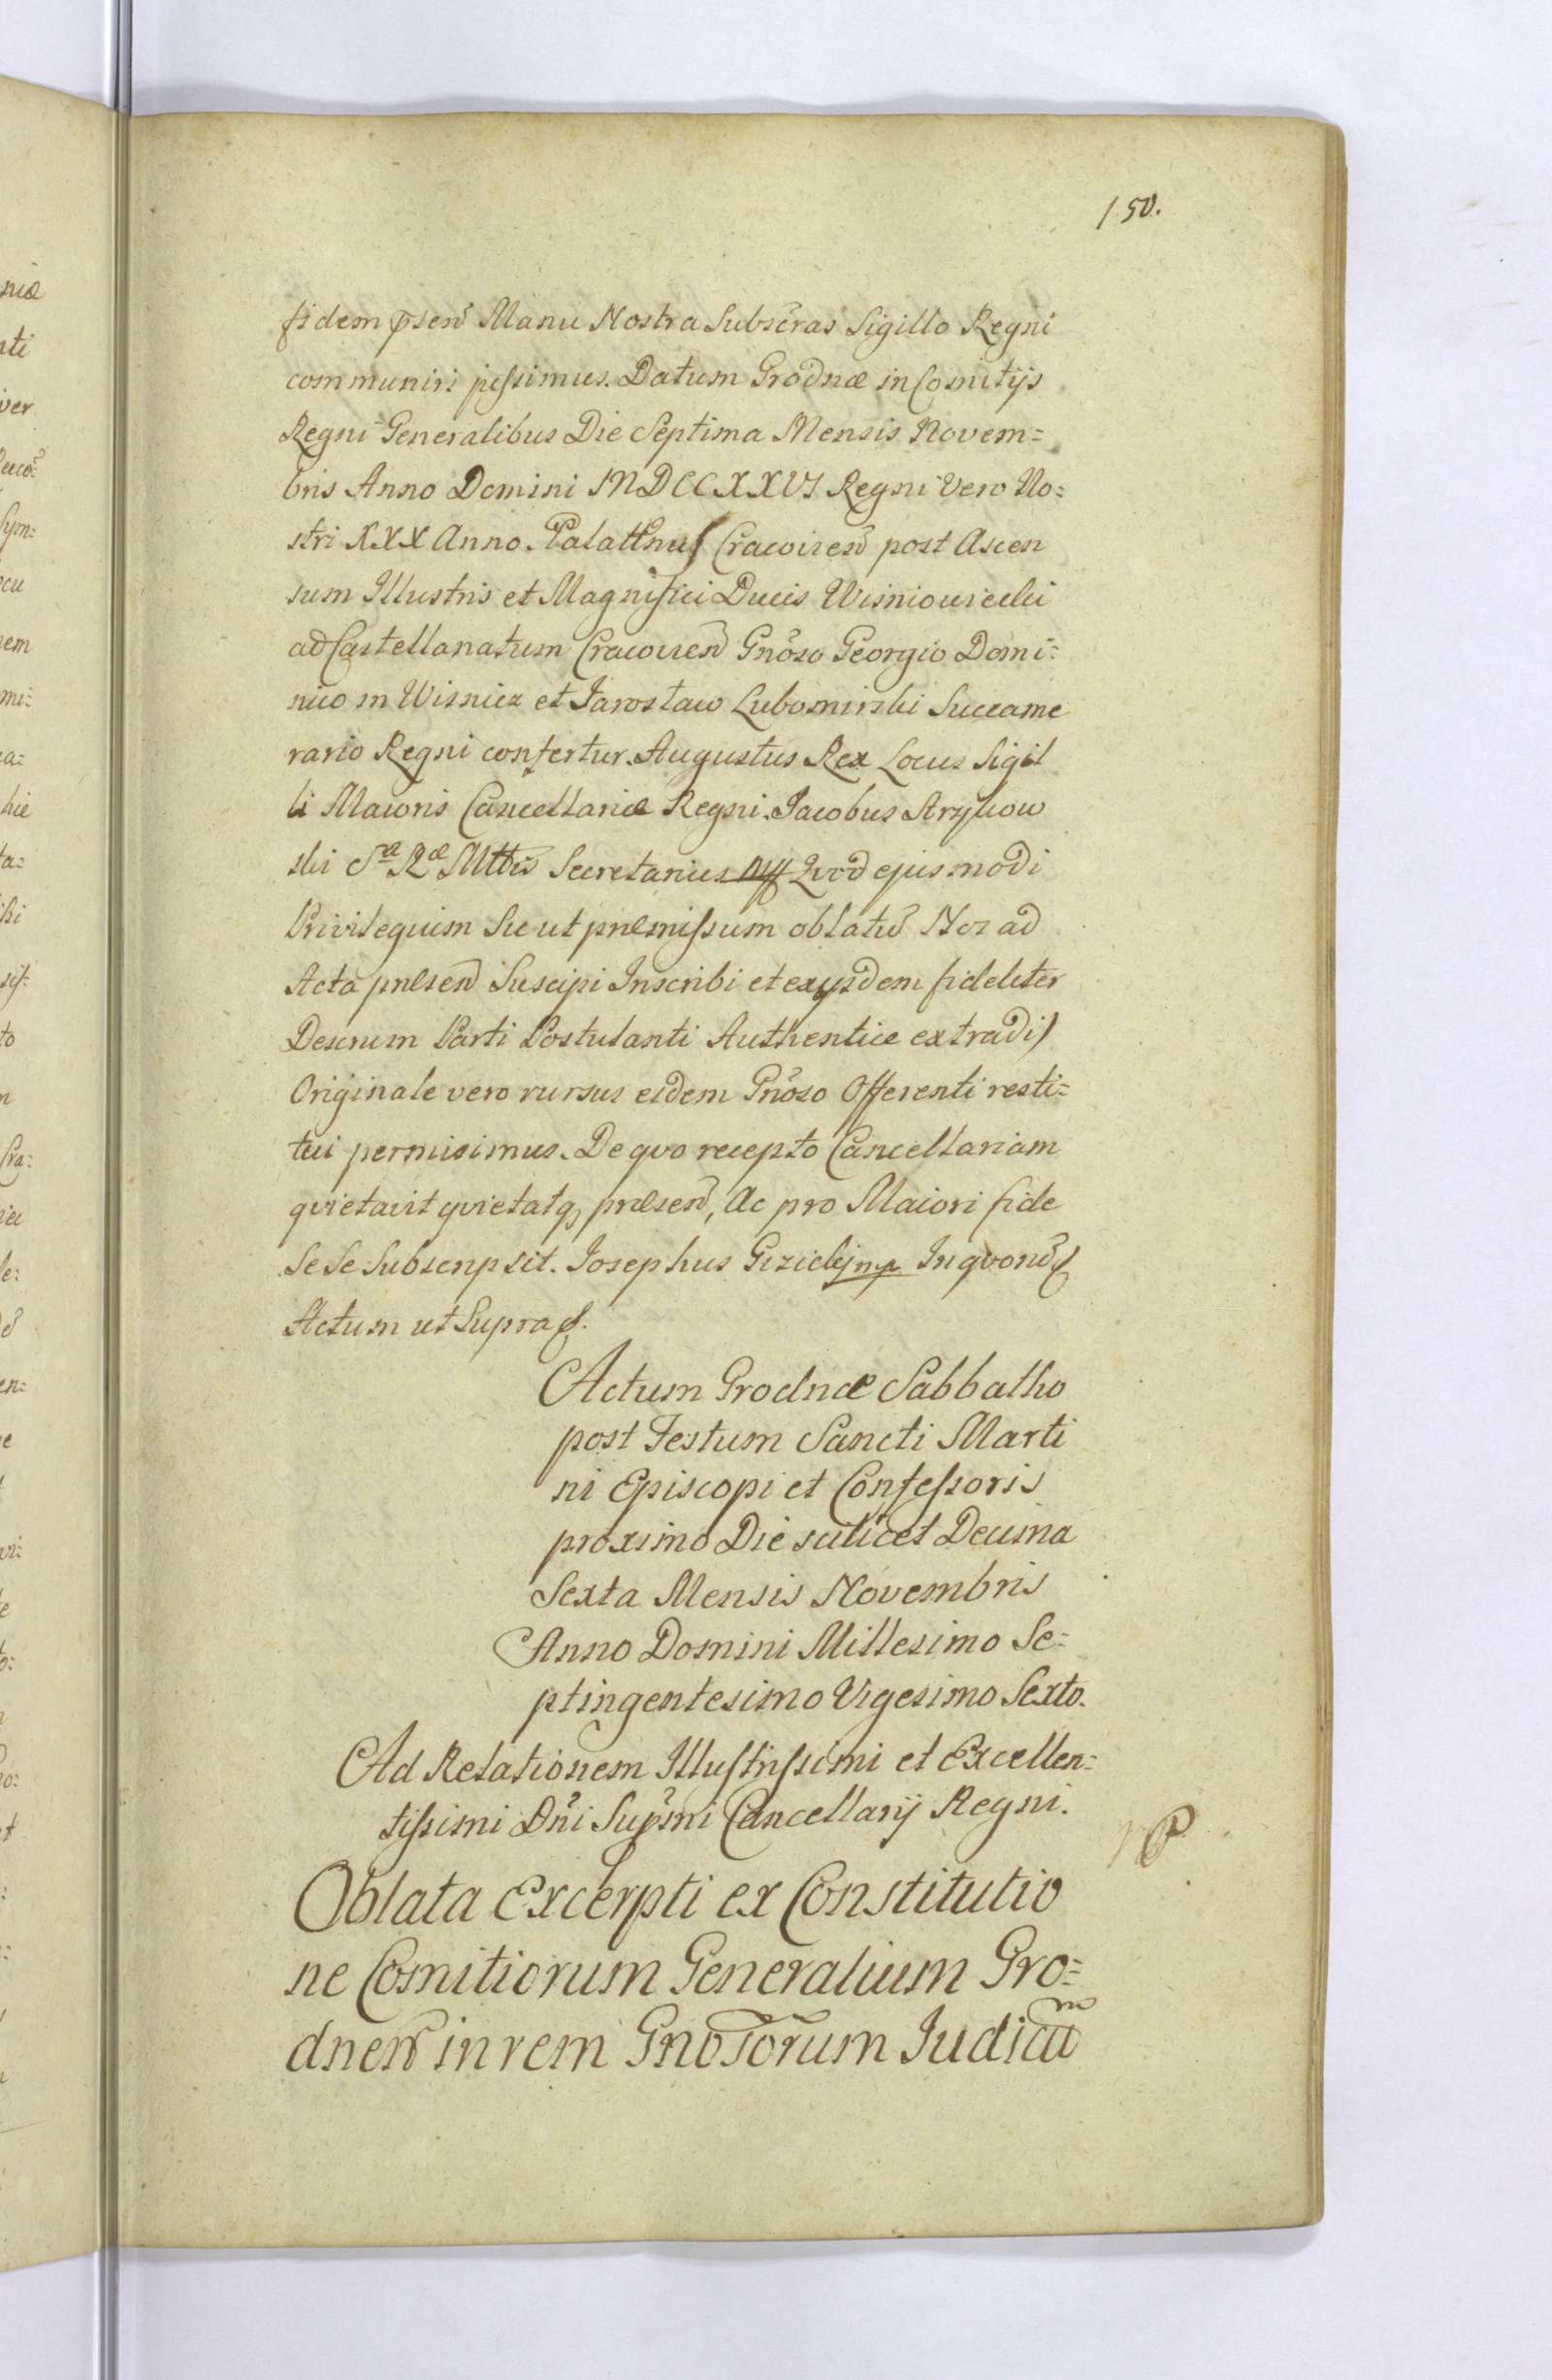 150.
fidem prsen Manu Nostra Subscras Sigillo Regni
communiri jussimus. Datum Grodnæ in Comitijs
Regni Generalibus Die Septima Mensis Novem=
bris Anno Domini MDCCXXVI Regni Vero No=
stri XXX Anno. Palattnus Cracovien post Ascen
sum Illustris et Magnifici Ducis Wisniowiecki
ad Castellanatum Cracovien Gnoso Georgio Domi=
nico in Wisnicz et Jarosław Lubomirski Succame
rario Regni confertur. Augustus Rex Locus Sigil
li Maioris Cancellariæ Regni. Jacobus
ski Sæ Ræ Mttis Secretarius mp Qvod ejusmodi
Privilegium Sic ut præmissum oblatu Nos ad
Acta præsen Suscipi Inscribi et exijsdem fideliter
Descrum Parti Postulanti Authentice extradi
Originale vero rursus eidem Gnoso Offerenti resti=
tui permisimus. De qvo recepto Cancellariam
qvietavit qvietatq præsen, Ac pro Maiori fide
Se Se Subscripsit. Josephus mp In qvoru
Actum ut Supra
Actum Grodnæ Sabbatho
post Festum Sancti Marti
ni Episcopi et Confessoris
proximo Die scilicet Decima
Sexta Mensis Novembris
Anno Domini Millesimo Se=
ptingentesimo Vigesimo Sexto.
Ad Relationem Illustrissimi et Excellen=
tissimi Dni Supmi Cancellarij Regni.
Oblata Excerpti ex Constitutio
ne Comitiorum Generalium Gro=
dnen in rem Gnosorum Judicu